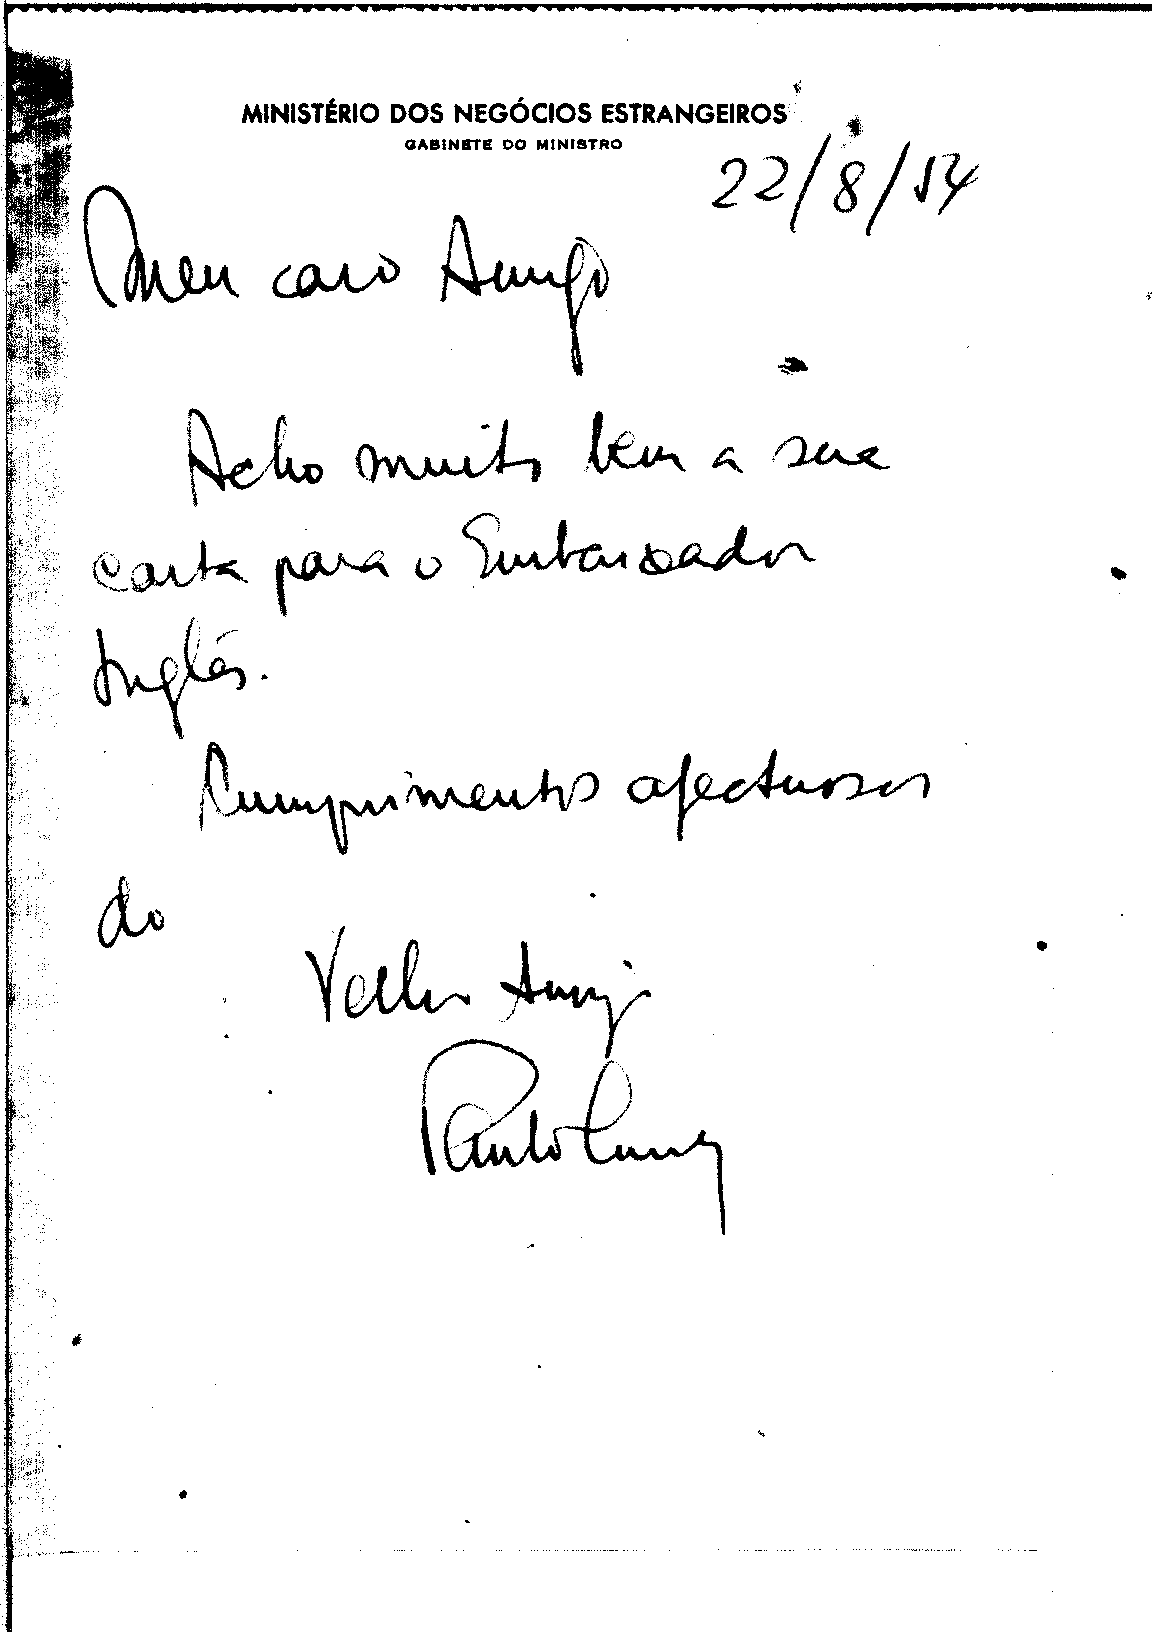 MINISTÉRIO DOS NEGÓCIOS ESTRANGEIROS
GABINETE DO MINISTRO
22/8/54
Meu caro Amigo
Acho muito bem a sua
carta para o Embaixador
Inglês.
Cumprimentos afectuosos
do
Velho Amigo
Paulo Cunha